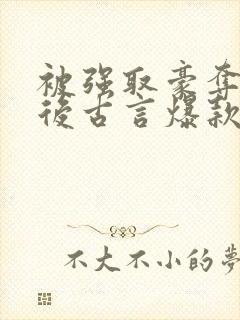 被强取豪夺
後古言爆款
不大不小的夢